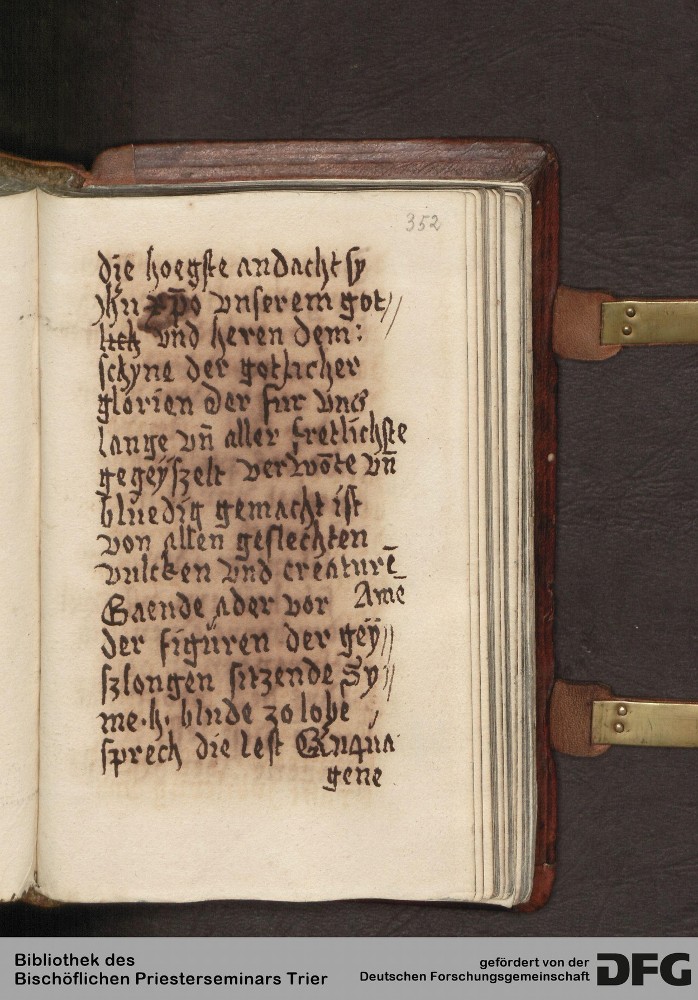 352
die hoegste andacht sy
Jhu xp̄o vnserem got //
lich vnd heren dem:
schyne der gotlicher
glorien der fur vns
lange vn̄ aller fretlichste
gegeyszelt verwōte vn̄
bluedig gemacht ist
von allen geslechten
vulcken vnd creaturē
Amē
Gaende ader vor
der figuren der gey //
szlongen sitzende Sy //
me.h. blude zo lobe
sprech die lest
gene
Bibliothek des
Bischöflichen Priesterseminars Trier
gefördert von der
Deutschen Forschungsgemeinschaft
DFG